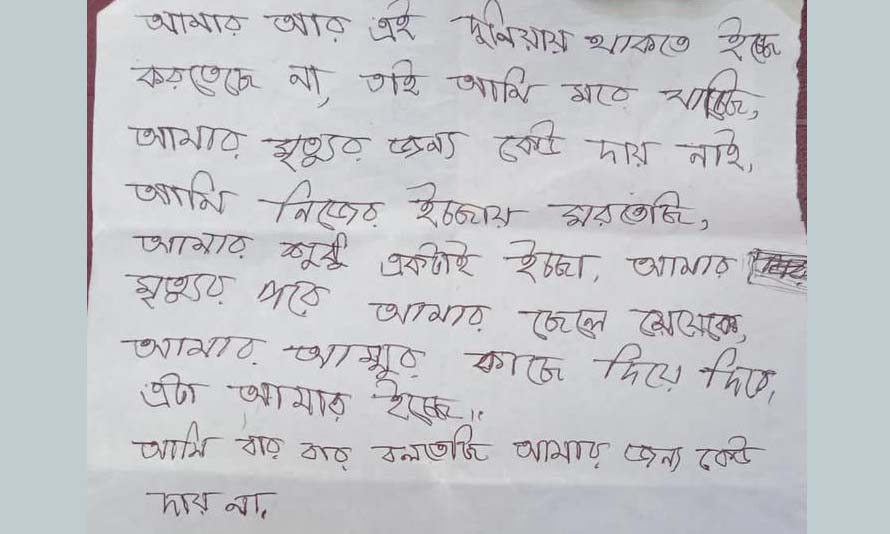 আমার আর এই দুনিয়ায় থাকতে ইচ্ছে
করতেছে না, তাই আমি মরে যাচ্ছি,
আমার মৃত্যুর জন্য কেউ দায় নাই,
আমি নিজের ইচ্ছায় মরতেছি,
আমার শুধু একটাই ইচ্ছা, আমার
মৃত্যুর পরে আমার ছেলে মেয়েকে,
আমার আম্মুর কাছে দিয়ে দিতে,
এটা আমার ইচ্ছে।।
আমি বার বার বলতেছি আমার জন্য কেউ
দায় না,